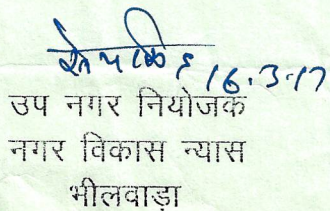 16.3.17
उप नगर नियोजक
नगर विकास न्यास
भीलवाड़ा